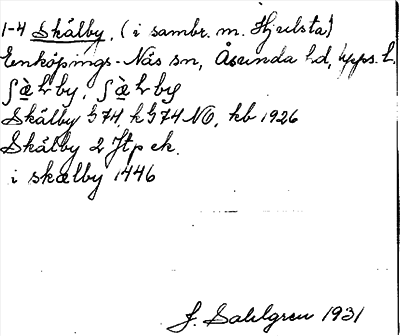 1-4 Skälby, (i sambr. m. Hjulsta)
Enköpings-Näs sn, Åsunda hd, Upps. l.
ʃὰƚby, ʃὰƚby
Skälby S 74 k S 74 NO, kb 1926
Skälby 2 Jfp ek.
i skælby 1446
J. Sahlgren 1931